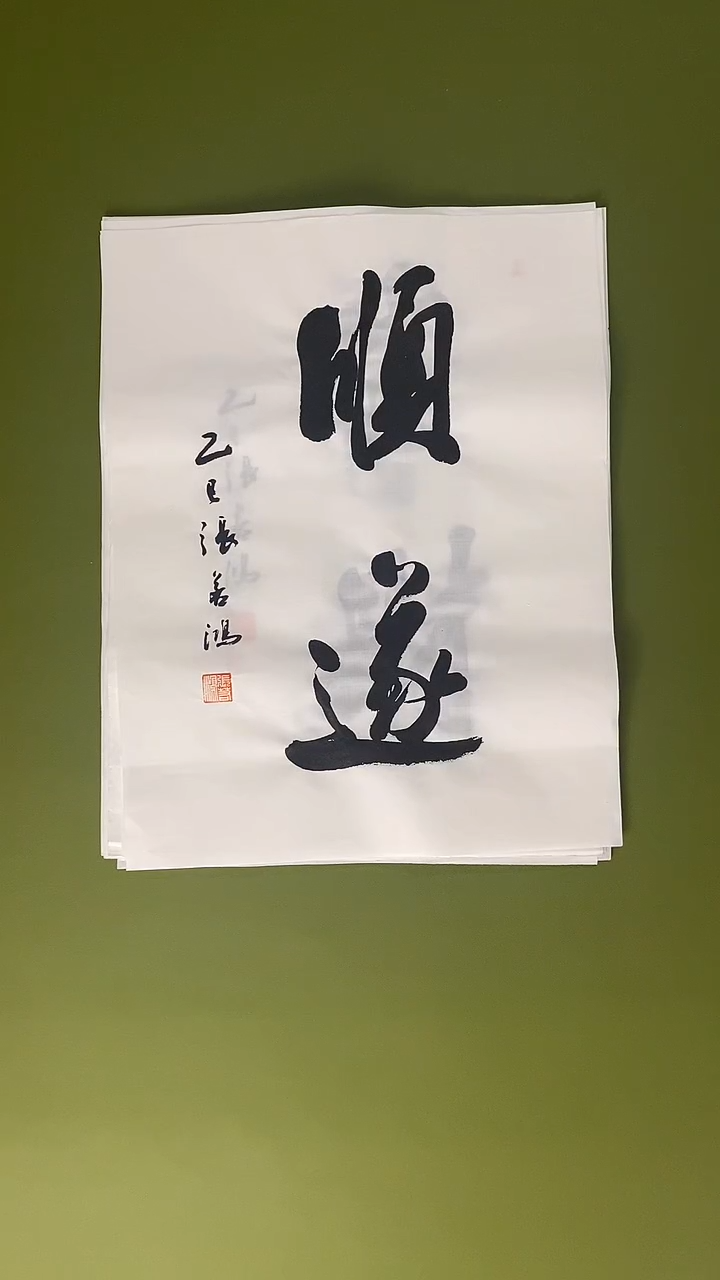 順
遂
乙巳張善鴻